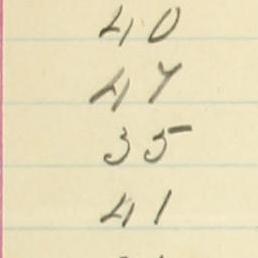 40
47
35
41